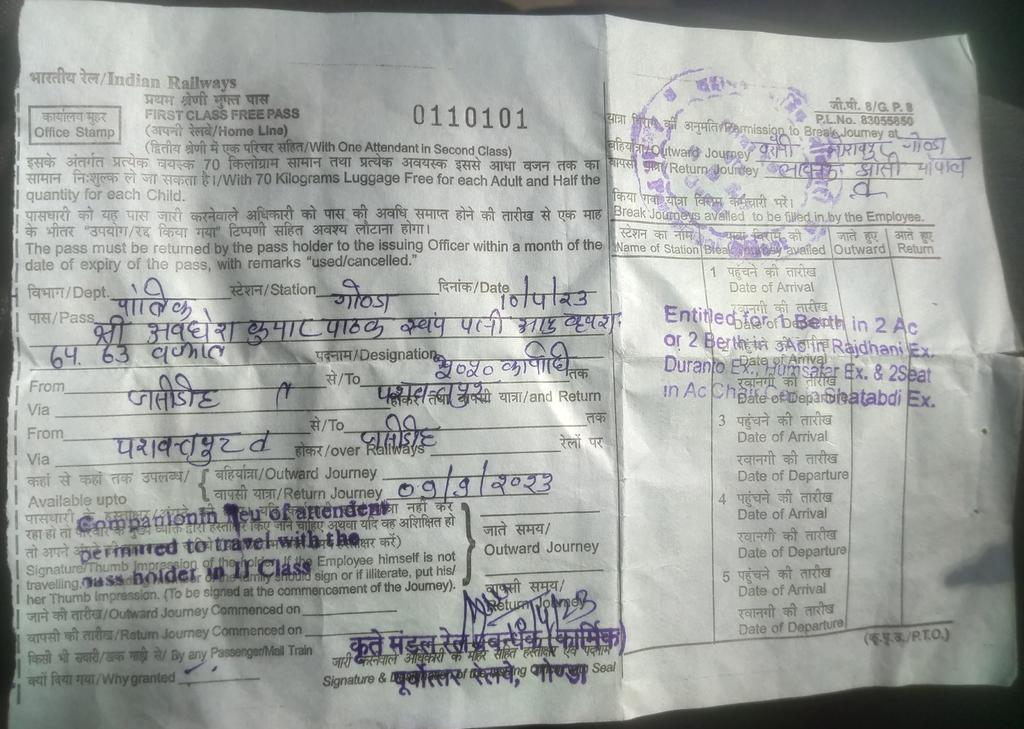 भारतीय रेल/Indian Railways
कार्यालय मुहर
Office Stamp
प्रथम श्रेणी मुफ्त पास
FIRST CLASS FREE PASS
(अपनी रेलवे/Home Line)
0110101
(द्वितीय श्रेणी में एक परिचर सहित/With One Attendant in Second Class)
इसके अंतर्गत प्रत्येक वयस्क 70 किलोग्राम सामान तथा प्रत्येक अवयस्क इससे आधा वजन तक का
सामान निःशुल्क ले जा सकता है।/With 70 Kilograms Luggage Free for each Adult and Half the
quantity for each Child.
पासधारी को यह पास जारी करनेवाले अधिकारी को पास की अवधि समाप्त होने की तारीख से एक माह
के भीतर "उपयोग/रद्द किया गया" टिप्पणी सहित अवश्य लौटाना होगा।
The pass must be returned by the pass holder to the issuing Officer within a month of the
date of expiry of the pass, with remarks "used/cancelled."
विभाग/Dept. स्टेशन/Station गोण्डा दिनांक/Date 10/4/23
पास/Pass श्री अवधेश कुमार पाठक स्वयं पत्नी
64. 63 पदनाम/Designation
From जसीडीह से/To यशवन्तपुर तक
Via होकर तथा वापसी यात्रा/and Return
From यशवन्तपुर से/To जसीडीह तक
Via होकर/over Railways रेलों पर
कहां से कहां तक उपलब्ध/
Available upto
बहिर्यात्रा/Outward Journey
वापसी यात्रा/Return Journey 09/9/2023
Companion in lieu of attendent
permitted to travel with the
pass holder in II Class
Signature/Thumb Impression of the holder. If the Employee himself is not
travelling, should sign or if illiterate, put his/
her Thumb Impression. (To be signed at the commencement of the Journey).
जाते समय/
Outward Journey
वापसी समय/
Return Journey
जाने की तारीख/Outward Journey Commenced on
वापसी की तारीख/Return Journey Commenced on
किसी भी सवारी/डाक गाड़ी से/ By any Passenger/Mail Train
क्यों दिया गया/Why granted
कृते मंडल रेल प्रबन्धक (कार्मिक)
पूर्वोत्तर रेलवे, गोण्डा
Signature & Seal
जी.पी. 8/G.P. 8
P.L.No. 83055850
यात्रा विराम की अनुमति/Permission to Break Journey at
बहिर्यात्रा/Outward Journey गोण्डा
वापसी यात्रा/Return Journey लखनऊ झांसी भोपाल
किया गया यात्रा विराम कर्मचारी भरें।
Break Journeys availed to be filled in by the Employee.
स्टेशन का नाम
Name of Station
यात्रा विराम की
Break Journey availed
जाते हुए
Outward
आते हुए
Return
1 पहुंचने की तारीख
Date of Arrival
रवानगी की तारीख
Entitled for 1 Berth in 2 Ac
or 2 Berth in 3 Ac in Rajdhani Ex.
Duranto Ex., Humsafar Ex. & 2Seat
in Ac Chair Shatabdi Ex.
Date of Arrival
रवानगी की तारीख
Date of Departure
3 पहुंचने की तारीख
Date of Arrival
रवानगी की तारीख
Date of Departure
4 पहुंचने की तारीख
Date of Arrival
रवानगी की तारीख
Date of Departure
5 पहुंचने की तारीख
Date of Arrival
रवानगी की तारीख
Date of Departure
(कृ.पृ.उ./P.T.O.)